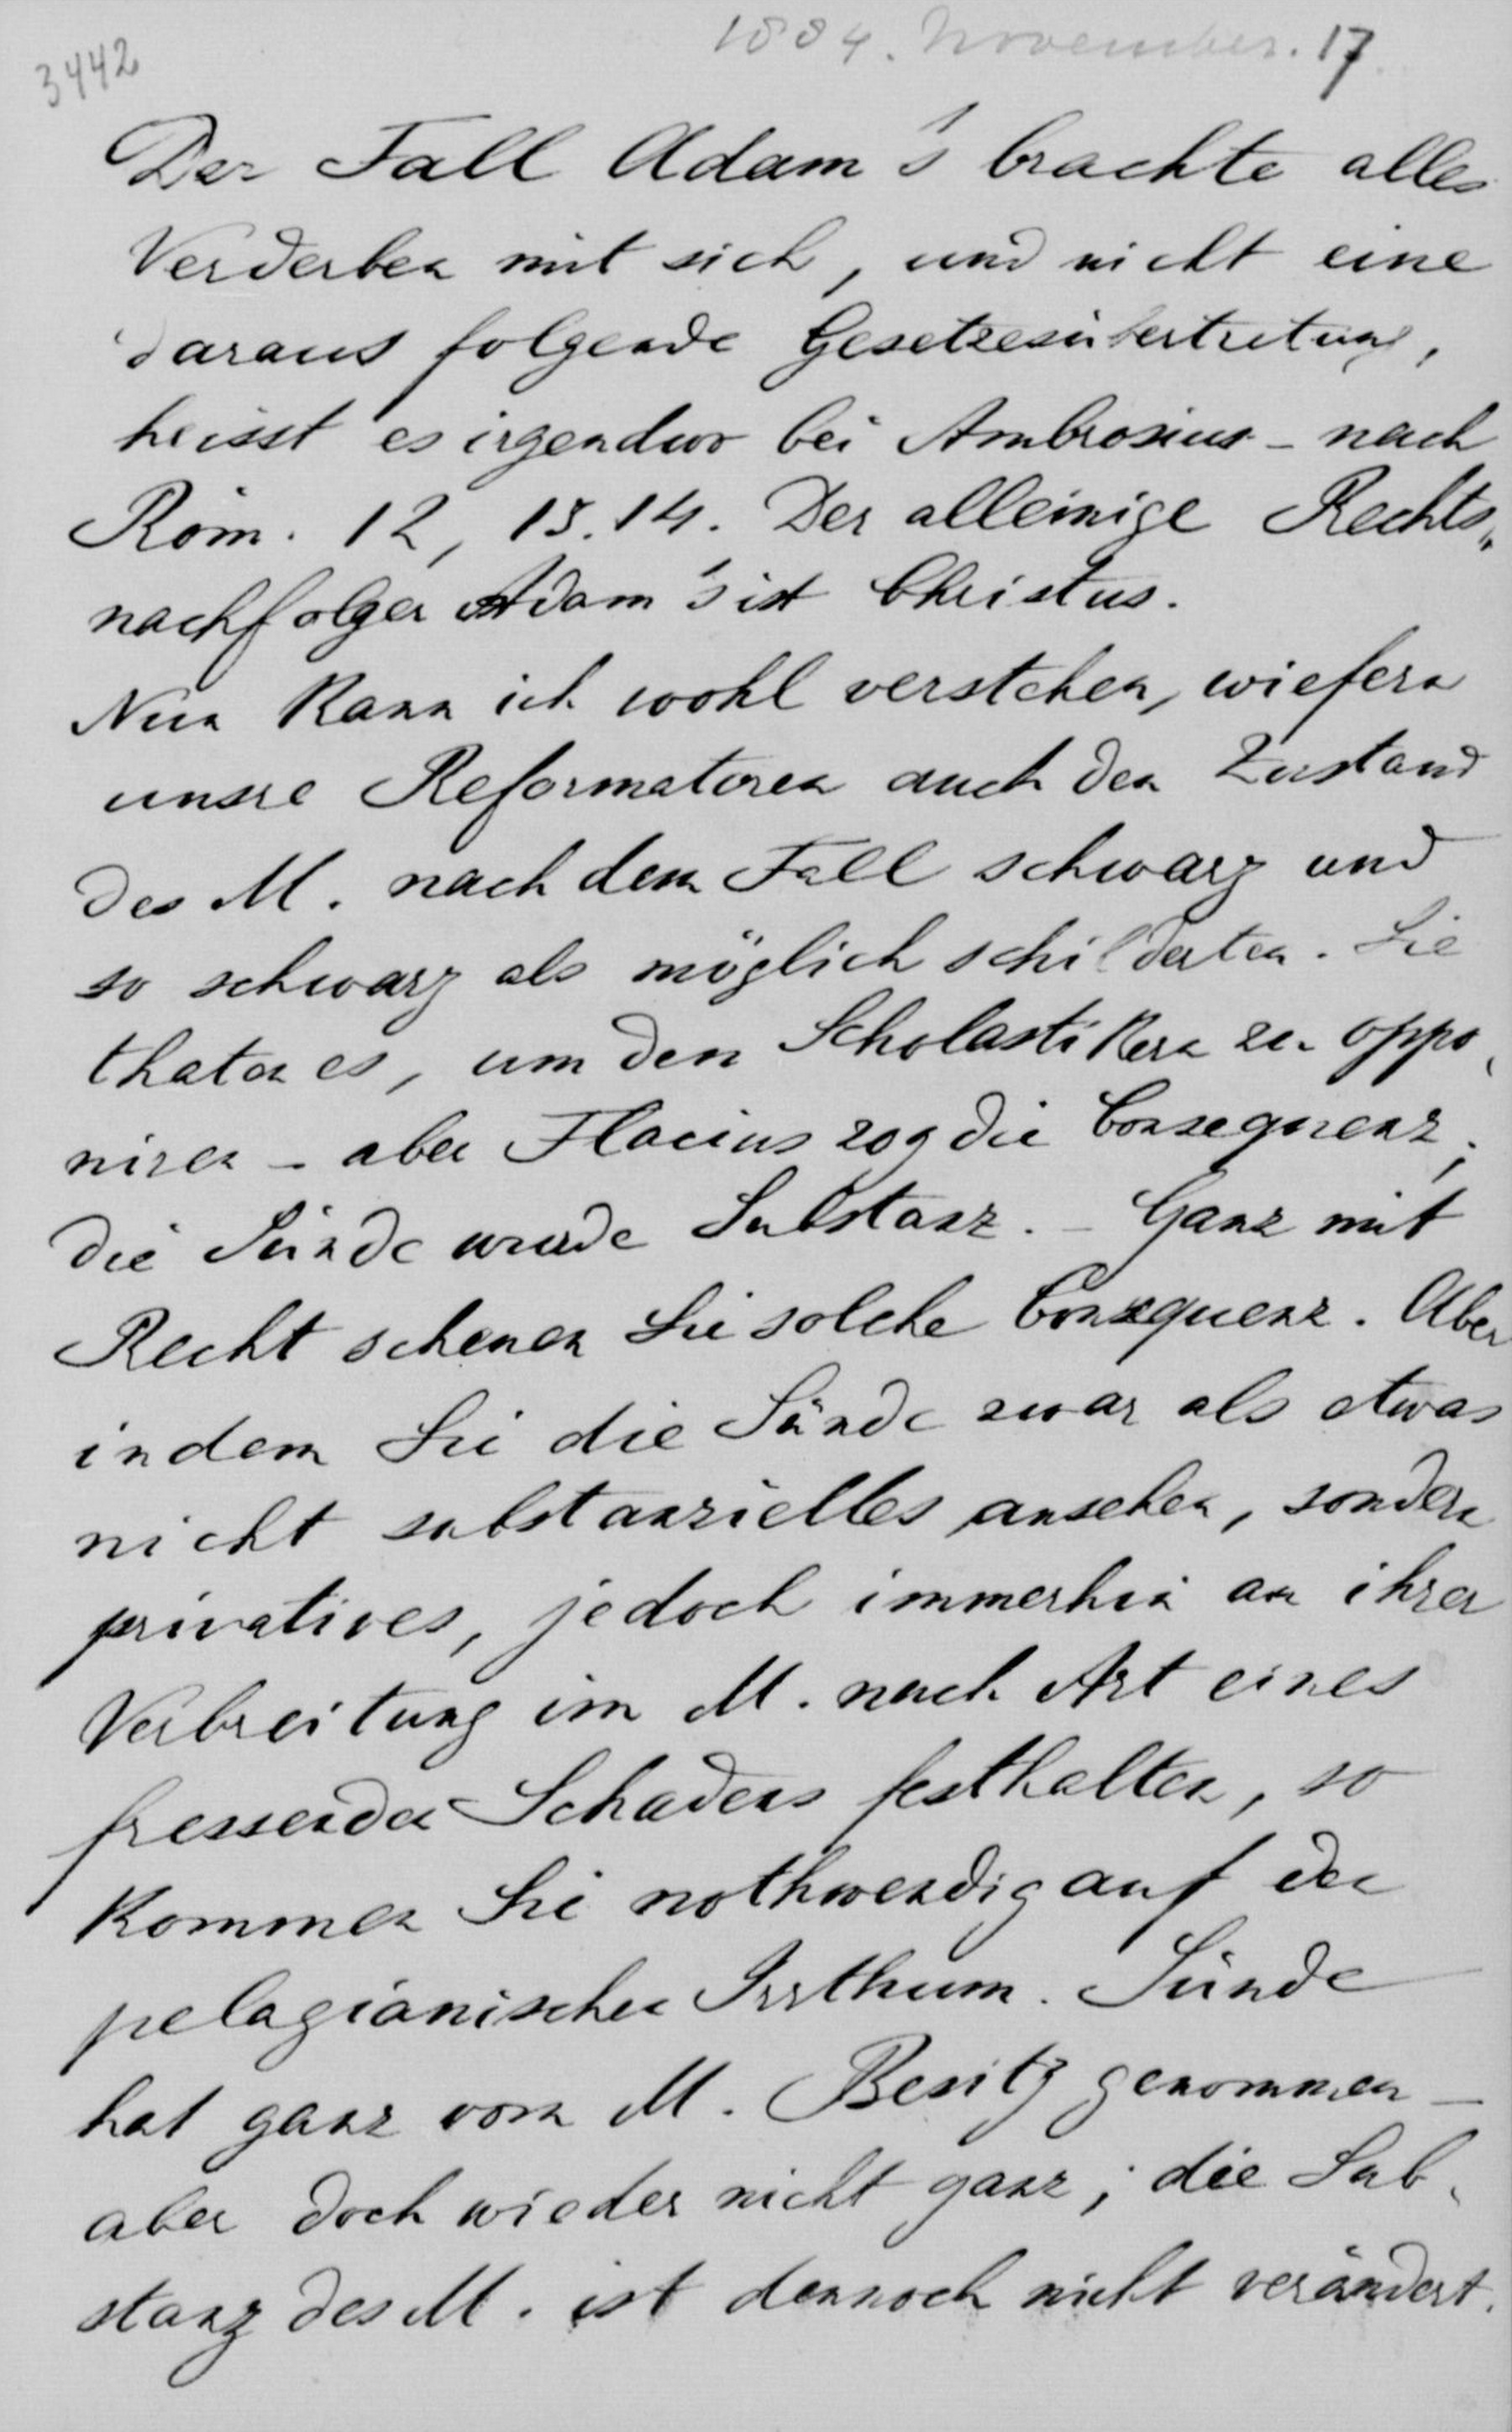 3442
1884. November. 17
Der Fall Adam's brachte alles
Verderben mit sich, und nicht eine
daraus folgende Gesetzesübertretung,
heisst es irgendwo bei Ambrosius - nach
Röm. 12, 13.14. Der alleinige Rechts„
nachfolger Adam's ist Christus.
Nun kann ich wohl verstehen, wiefern
unsre Reformatoren auch den Zustand
des M. nach dem Fall schwarz und
so schwarz als möglich schilderten. Sie
thaten es, um den Scholastikern zu oppo„
niren - aber Flacius zog die Consequenz;
die Sünde wurde Substanz. - Ganz mit
Recht scheuen Sie solche Consequenz. Aber
indem Sie die Sünde zwar als etwas
nicht substanzielles ansehen, sondern
privatives, jedoch immerhin an ihrer
Verbreitung im M. nach Art eines
fressenden Schadens festhalten, so
kommen Sie nothwendig auf den
pelagianischen Irrthum. Sünde
hat ganz vom M. Besitz genommen -
aber doch wieder nicht ganz; die Sub„
stanz des M. ist dennoch nicht verändert.